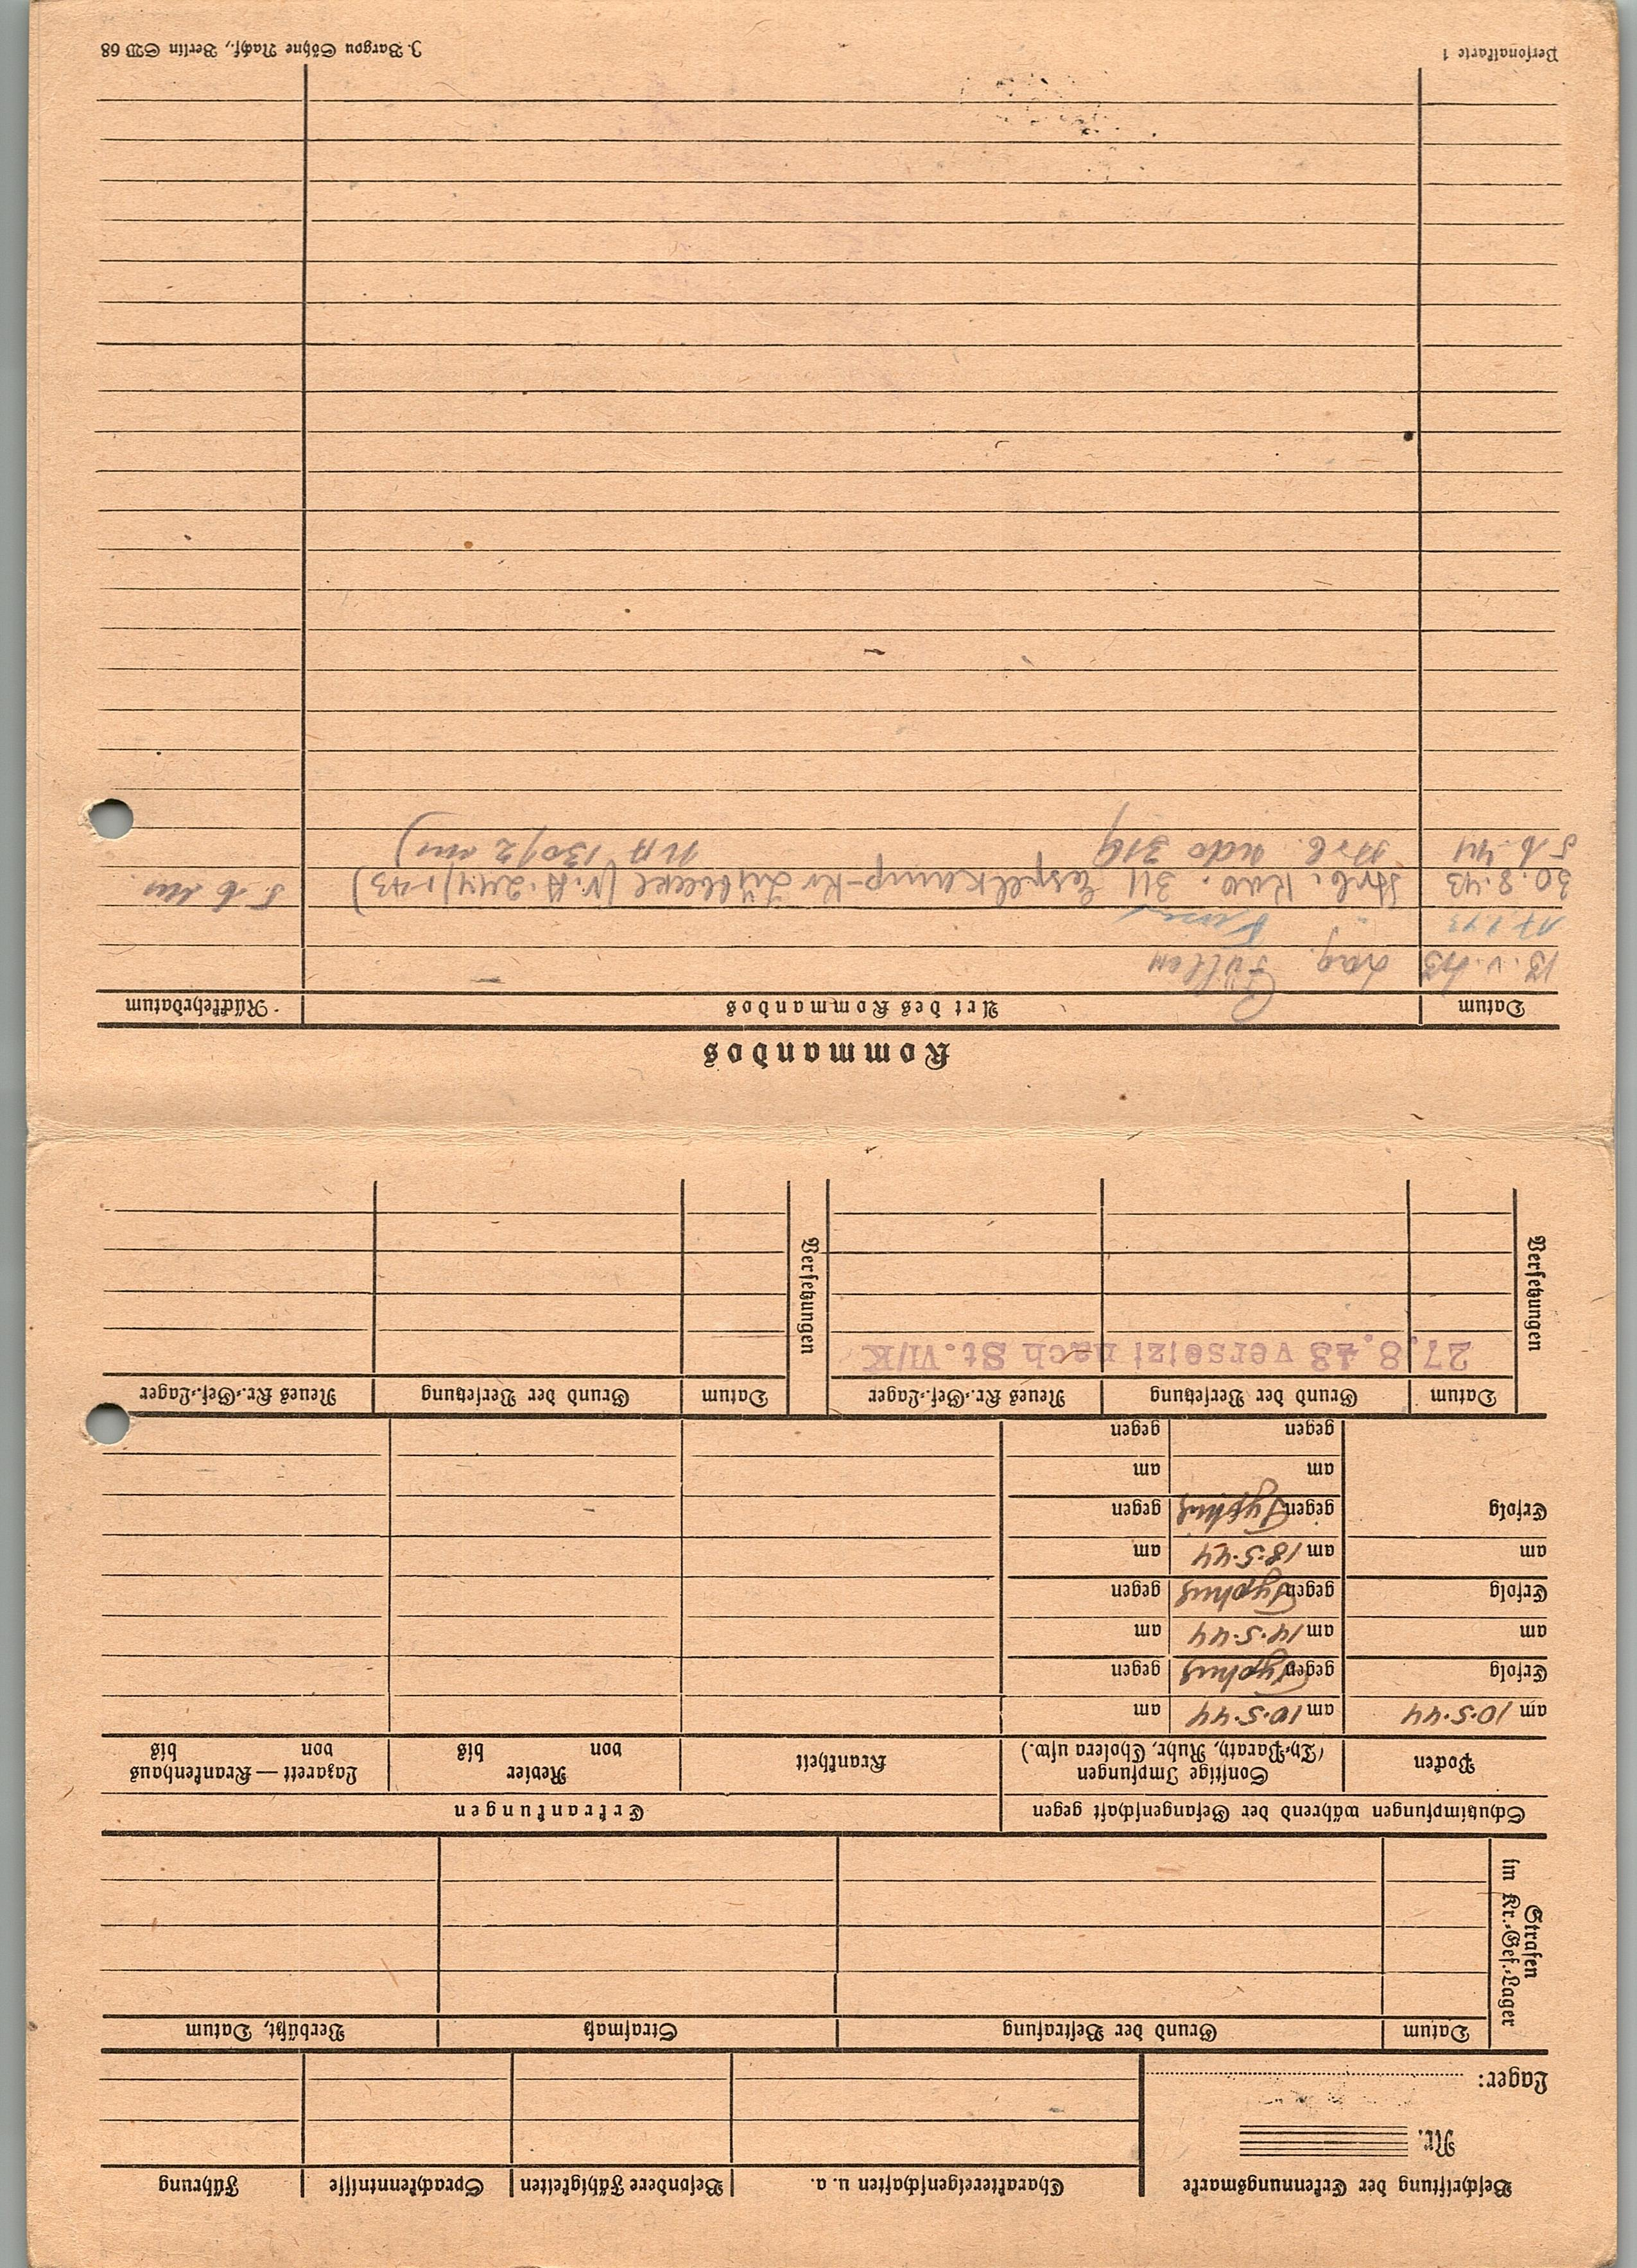 Beschriftung der Erkennungsmarke
Nr.
Lager:
Charaktereigenschaften u. a. Besondere Fähigkeiten Sprachkenntnisse Führung
Strafen
im Kr.-Gef.-Lager
Datum Grund der Bestrafung Strafmaß Verbüßt, Datum
Schutzimpfungen während der Gefangenschaft gegen Erkrankungen
Pocken
Sonstige Impfungen
(Th.-Parath, Ruhr, Cholera usw.)
Krankheit
Revier
von bis
Lazarett — Krankenhaus
von bis
am 10.5.44 am 10.5.44 am
Erfolg gegen Typhus gegen
am am 14.5.44 am
Erfolg gegen Typhus gegen
am am 18.5.44 am
Erfolg gegen Typhus gegen
am am
gegen gegen
Versetzungen
Datum Grund der Versetzung Neues Kr.-Gef.-Lager
27.8.43 versetzt nach St. VI/K
Versetzungen
Datum Grund der Versetzung Neues Kr.-Gef.-Lager
Kommandos
Datum Art des Kommandos Rückkehrdatum
13.V.43 Lag. Füllen
30.8.43 Arb. Kdo. 311 Espelkamp-Kr Lübbecke
5.6.44 Arb. Kdo 319
Personalkarte 1 J. Bargou Söhne Nachf., Berlin SW 68